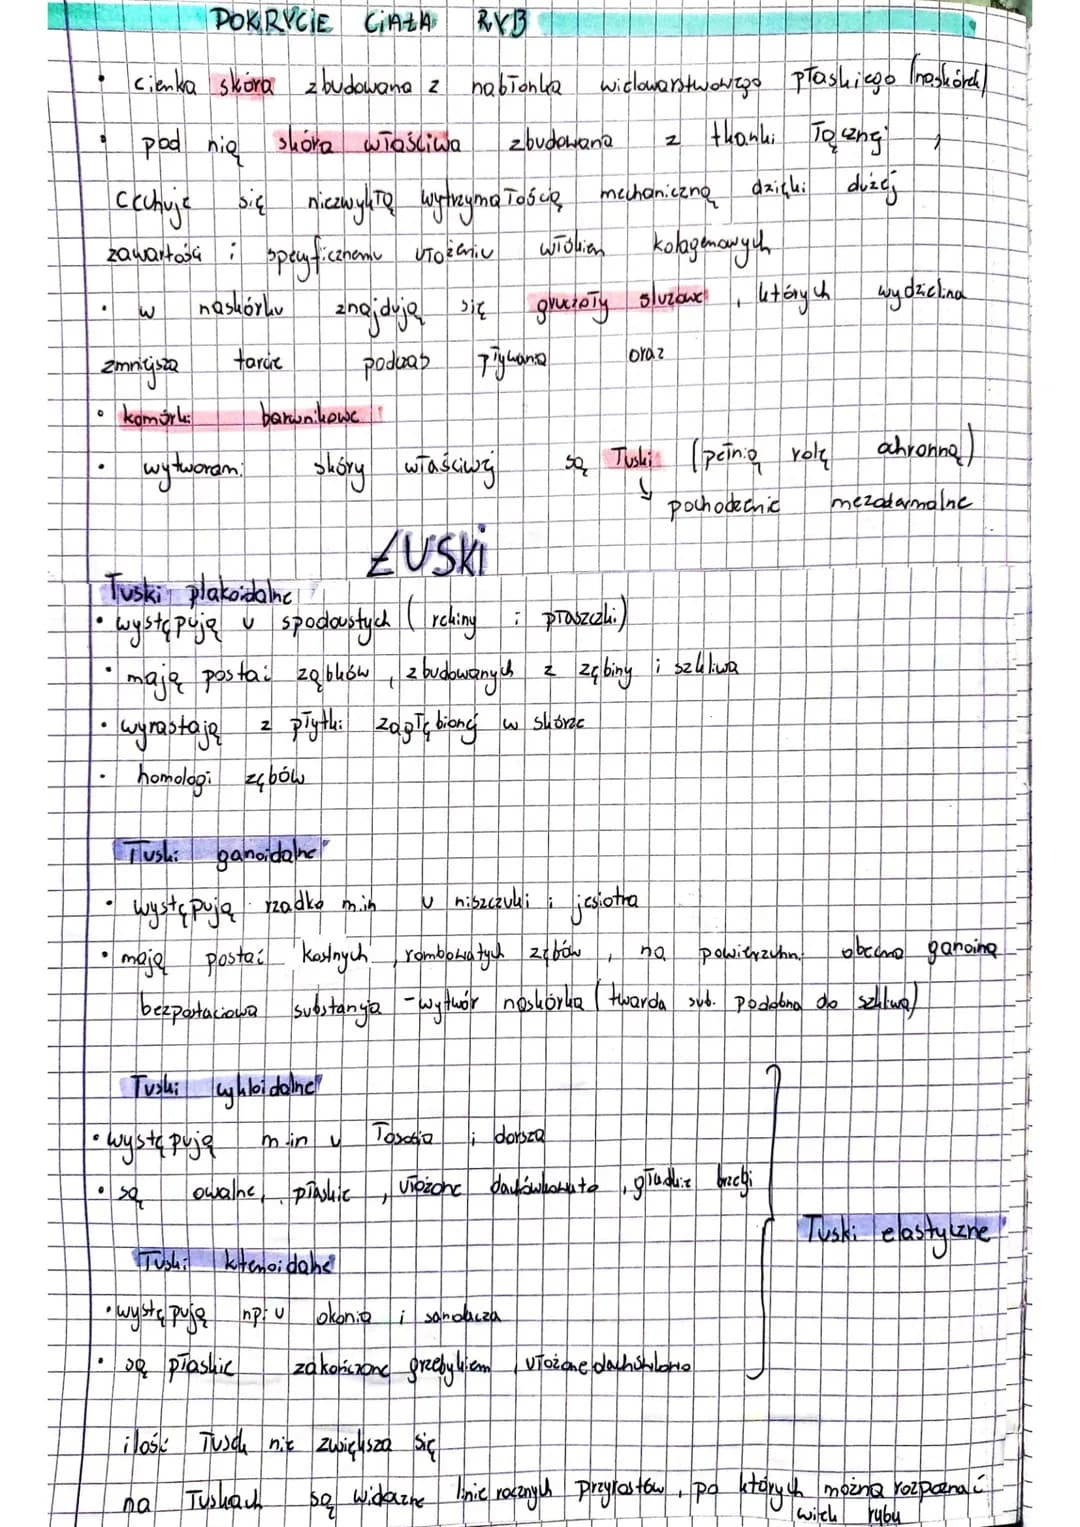 POKRYCIE CIAŁA RYB
• cienka skóra zbudowana z nabłonka wielowarstwowego płaskiego (naskórek)
• pod nią skóra właściwa zbudowana z tkanki łącznej,
cechuje się niezwykłą wytrzymałością mechaniczną dzięki dużej
zawartości i specyficznemu ułożeniu włókien kolagenowych
• w naskórku znajdują się gruczoły śluzowe, których wydzielina
zmniejsza tarcie podczas pływania oraz
• komórki barwnikowe
• wytworami skóry właściwej są łuski (pełnią rolę ochronną)
↳ pochodzenie mezodermalne
ŁUSKI
łuski plakoidalne
• występują u spodoustych (rekiny i płaszczki)
• mają postać ząbków, zbudowanych z zębiny i szkliwa
• wyrastają z płytki zagłębionej w skórze
• homologi zębów
łuski ganoidalne
• występują rzadko m.in u niszczuki i jesiotra
• mają postać kostnych, rombowatych zębów, na powierzchni obecna ganoina
bezpostaciowa substancja - wytwór naskórka (twarda sub. podobna do szkliwa)
łuski cykloidalne
• występują m.in u łososia i dorsza
• są owalne, płaskie, ułożone dachówkowato, gładkie brzegi
łuski elastyczne
łuski ktenoidalne
• występują np. u okonia i sandacza
• są płaskie zakończone grzebykiem, ułożone
ilość łusek nie zwiększa się
na łuskach są widoczne linie rocznych przyrostów, po których można rozpoznać
wiek ryby